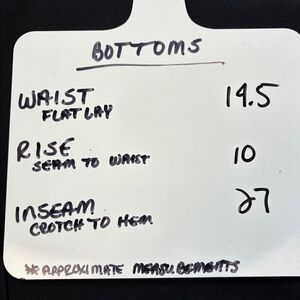 BOTTOMS
WAIST 19.5
FLAT LAY
RISE 10
SEAM TO WAIST
INSEAM 27
CROTCH TO HEM
* APPROXIMATE MEASUREMENTS